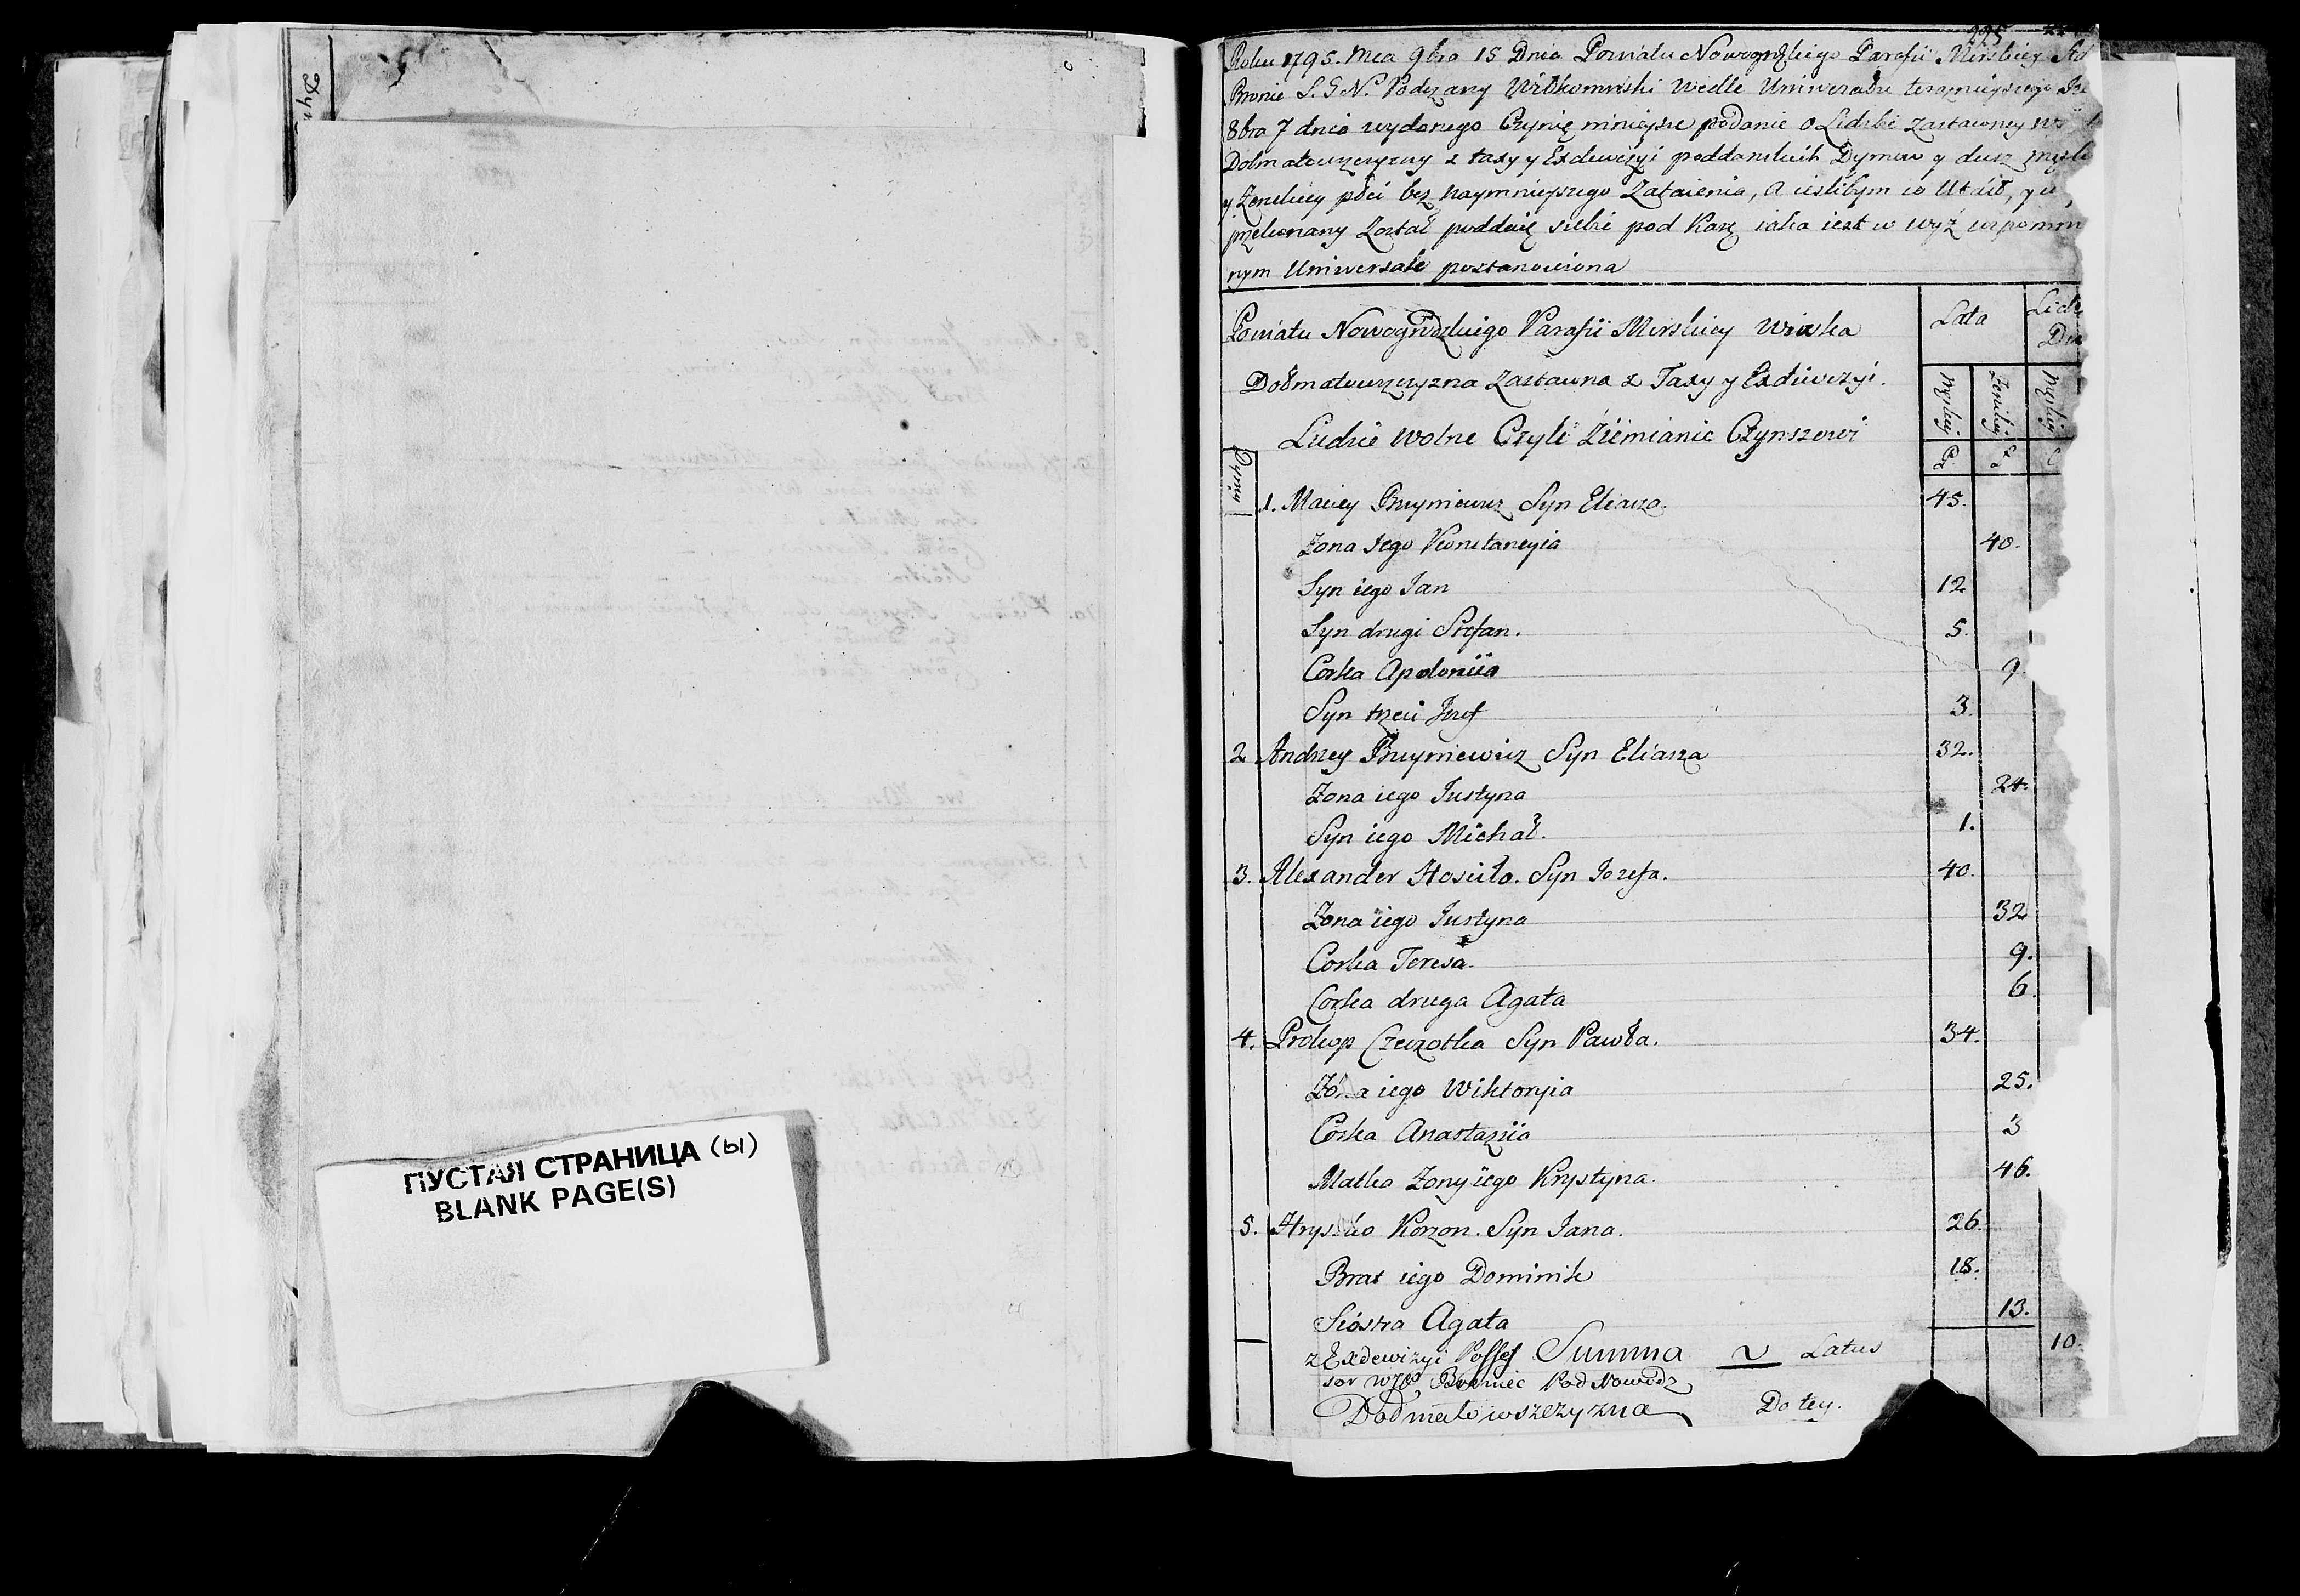 ПУСТАЯ СТРАНИЦА (ы)
BLANK PAGE(S)
995
Roku 1795. Mca 9bra 15 Dnia Powiatu Nowogrdzkiego Parafii Mirskiey
8bra 7 dnia wydanego Czynię ninieysze podanie o Liczbie zastawney
Dołmatowszczyzny z taxy y Exdewizyi poddanskich Dymow y dusz męzk
y Zenskiey płci bez naymnieyszego Zataienia, a ieslibym co Utaił, y
przekonany Został poddaię siebie pod Karę iaka iest w wyż wspomnio
nym Uniwersale postanowiona
Powiatu Nowogrodzkiego Parafii Mirskiey Wioska
Dołmatowszczyzna Zastawna z Taxy y Exdiwizyi.
Ludzie Wolne Czyli Ziemianie Czynszowi
Lata
Męzkiey
Zenskiey
Dymy
1. Maciey Syn Eliasza. 45.
Zona Iego Konstancyia 40.
Syn iego Jan 12
Syn drugi Stefan. 5.
Corka Apoloniia 9.
Syn trzeci Jozef 3.
2 Andrzey Syn Eliasza 32.
Zona iego Justyna 24.
Syn iego Michał. 1.
3. Alexander Hosciło. Syn Jozefa. 40.
Zona iego Justyna 32
Corka Teresa. 9.
Corka druga Agata 6.
4. Prokop Czeczotka Syn Pawła. 34.
Zona iego Wiktoryia 25.
Corka Anastaziia 3
Matka Zony iego Krystyna. 46.
5. Hryszko Korzon. Syn Jana. 26.
Brat iego Dominik 18.
Siostra Agata 13.
z Exdewizyi Posses Summa Latus 10.
sor
Dołmatowszczyzna Do tey.